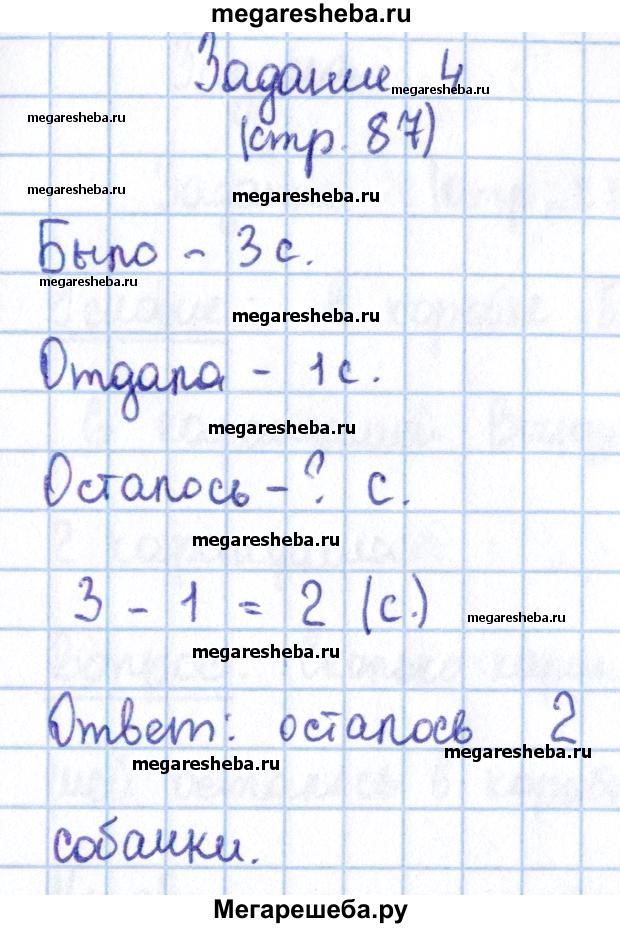 megaresheba.ru
Задание 4
megaresheba.ru
megaresheba.ru
(стр. 87)
megaresheba.ru
megaresheba.ru
Было - 3 с.
megaresheba.ru
megaresheba.ru
Отдала - 1 с.
megaresheba.ru
Осталось - ? с.
megaresheba.ru
3 - 1 = 2 (с.)
megaresheba.ru
megaresheba.ru
Ответ: осталось 2
megaresheba.ru
megaresheba.ru
собачки.
Мегарешеба.ру